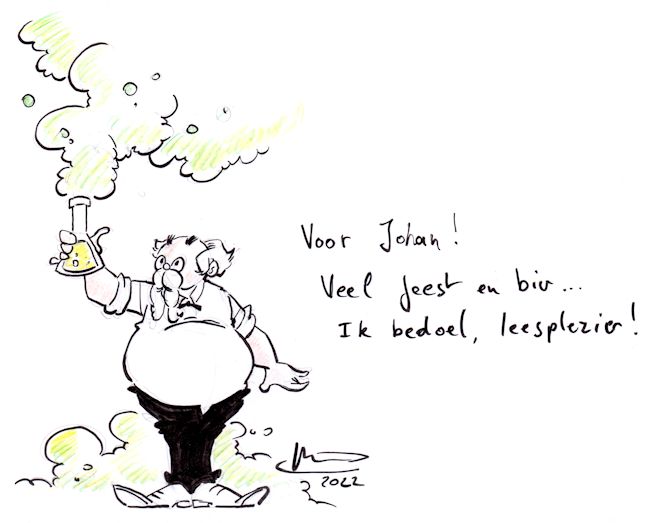 Voor Johan!
Veel feest en bier...
Ik bedoel, leesplezier!
2022